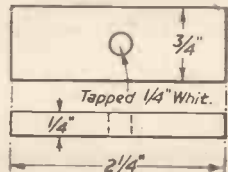 3/4"
Tapped 1/4" Whit.
1/4"
2 1/4"